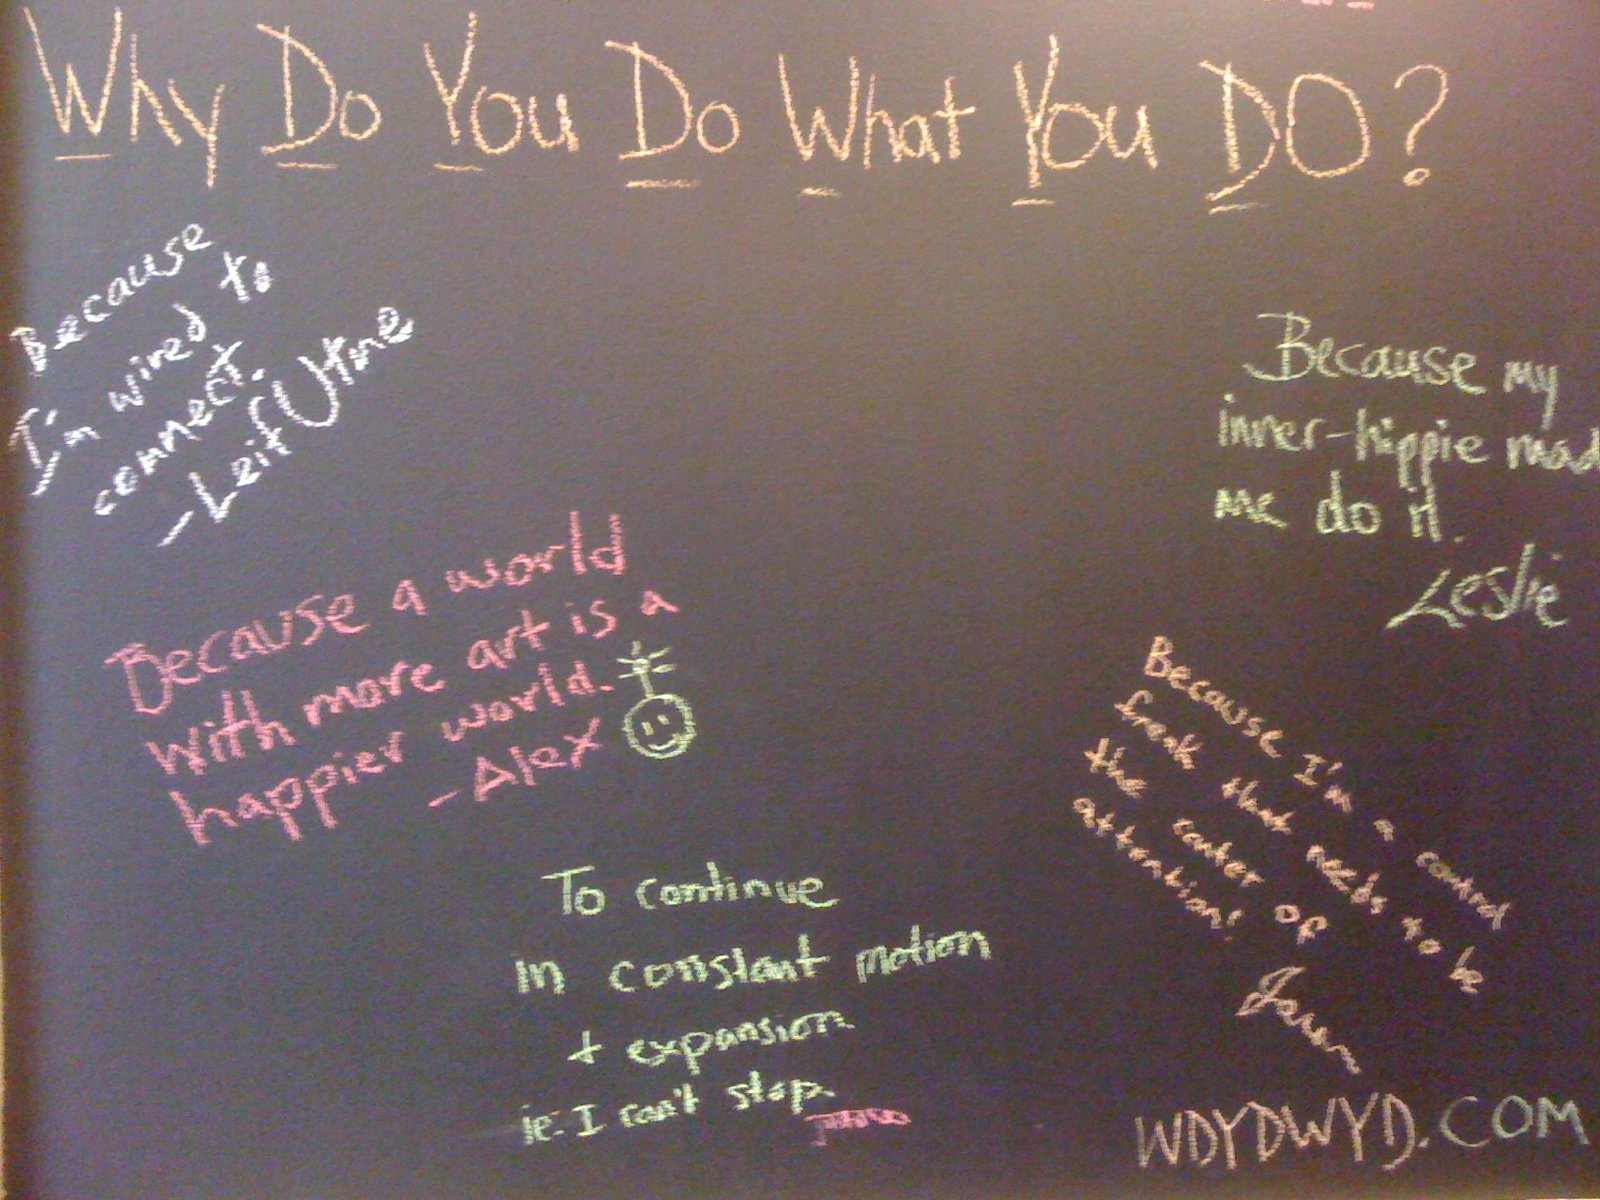 Why Do You Do What You DO?
Because
I'm wired to
connect.
-Leif Utne
Because my
inner-hippie mad
me do it.
Leslie
Because a world
with more art is a
happier world.
-Alex
Because I'm a control
freak that needs to be
the center of
attention!
To continue
in constant motion
+ expansion
ie: I can't stop
WDYDWYD.COM